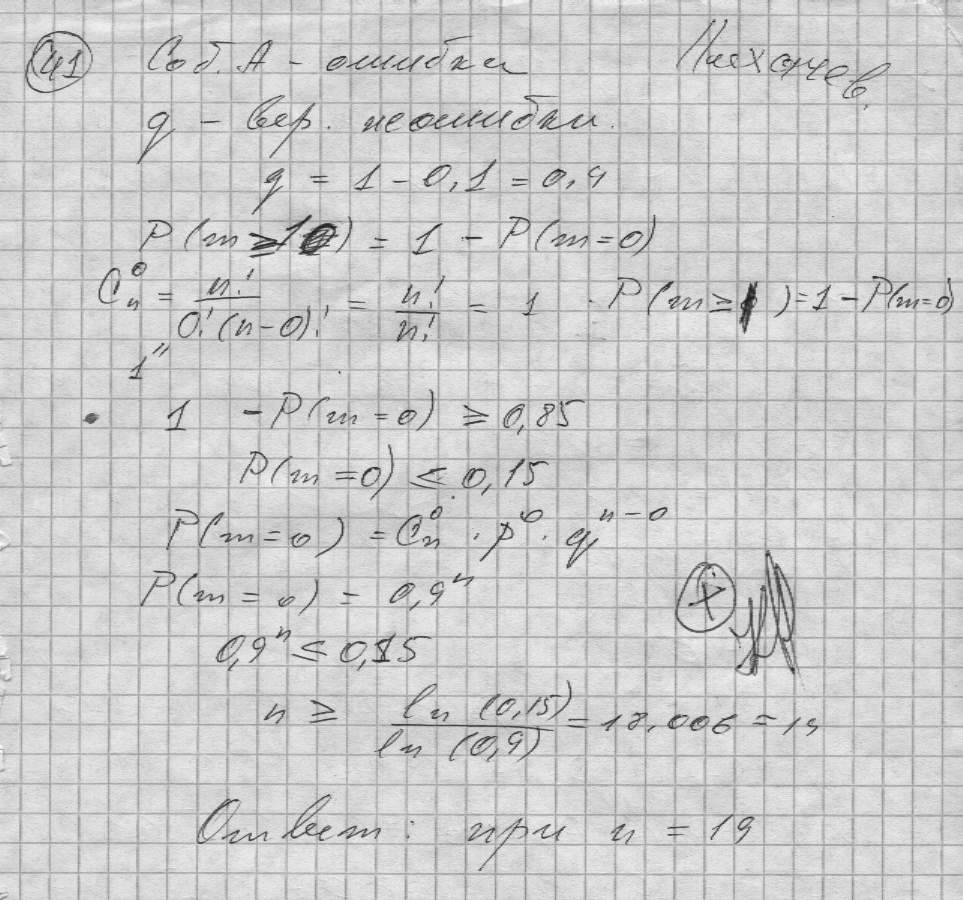 41 Соб. А - ошибки
q - вер. неошибки.
q = 1 - 0,1 = 0,9
P(m ≥ 1) = 1 - P(m=0)
C_n^0 = n! / 0!(n-0)! = n! / n! = 1 P(m ≥ 1) = 1 - P(m=0)
1"
1 - P(m=0) ≥ 0,85
P(m=0) ≤ 0,15
P(m=0) = C_n^0 · p^0 · q^{n-0}
P(m=0) = 0,9^n
0,9^n ≤ 0,15
n ≥ ln (0,15) / ln (0,9) = 18,006 = 19
Ответ: при n = 19